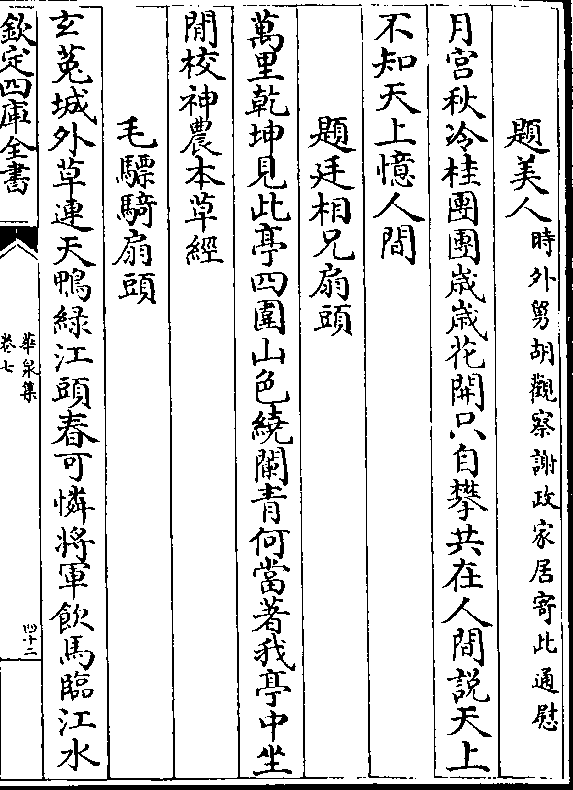 題美人時外舅胡觀察謝政家居寄此通慰
月宫秋冷桂團團歳歳花開只自攀共在人間說天上
不知天上憶人間
題廷相兄扇頭
萬里乾坤見此亭四圍山色繞闌青何當著我亭中坐
閒校神農本草經
毛驃騎扇頭
玄莵城外草連天鴨緑江頭春可憐將軍飲馬臨江水
欽定四庫全書
華泉集
卷七
四十二